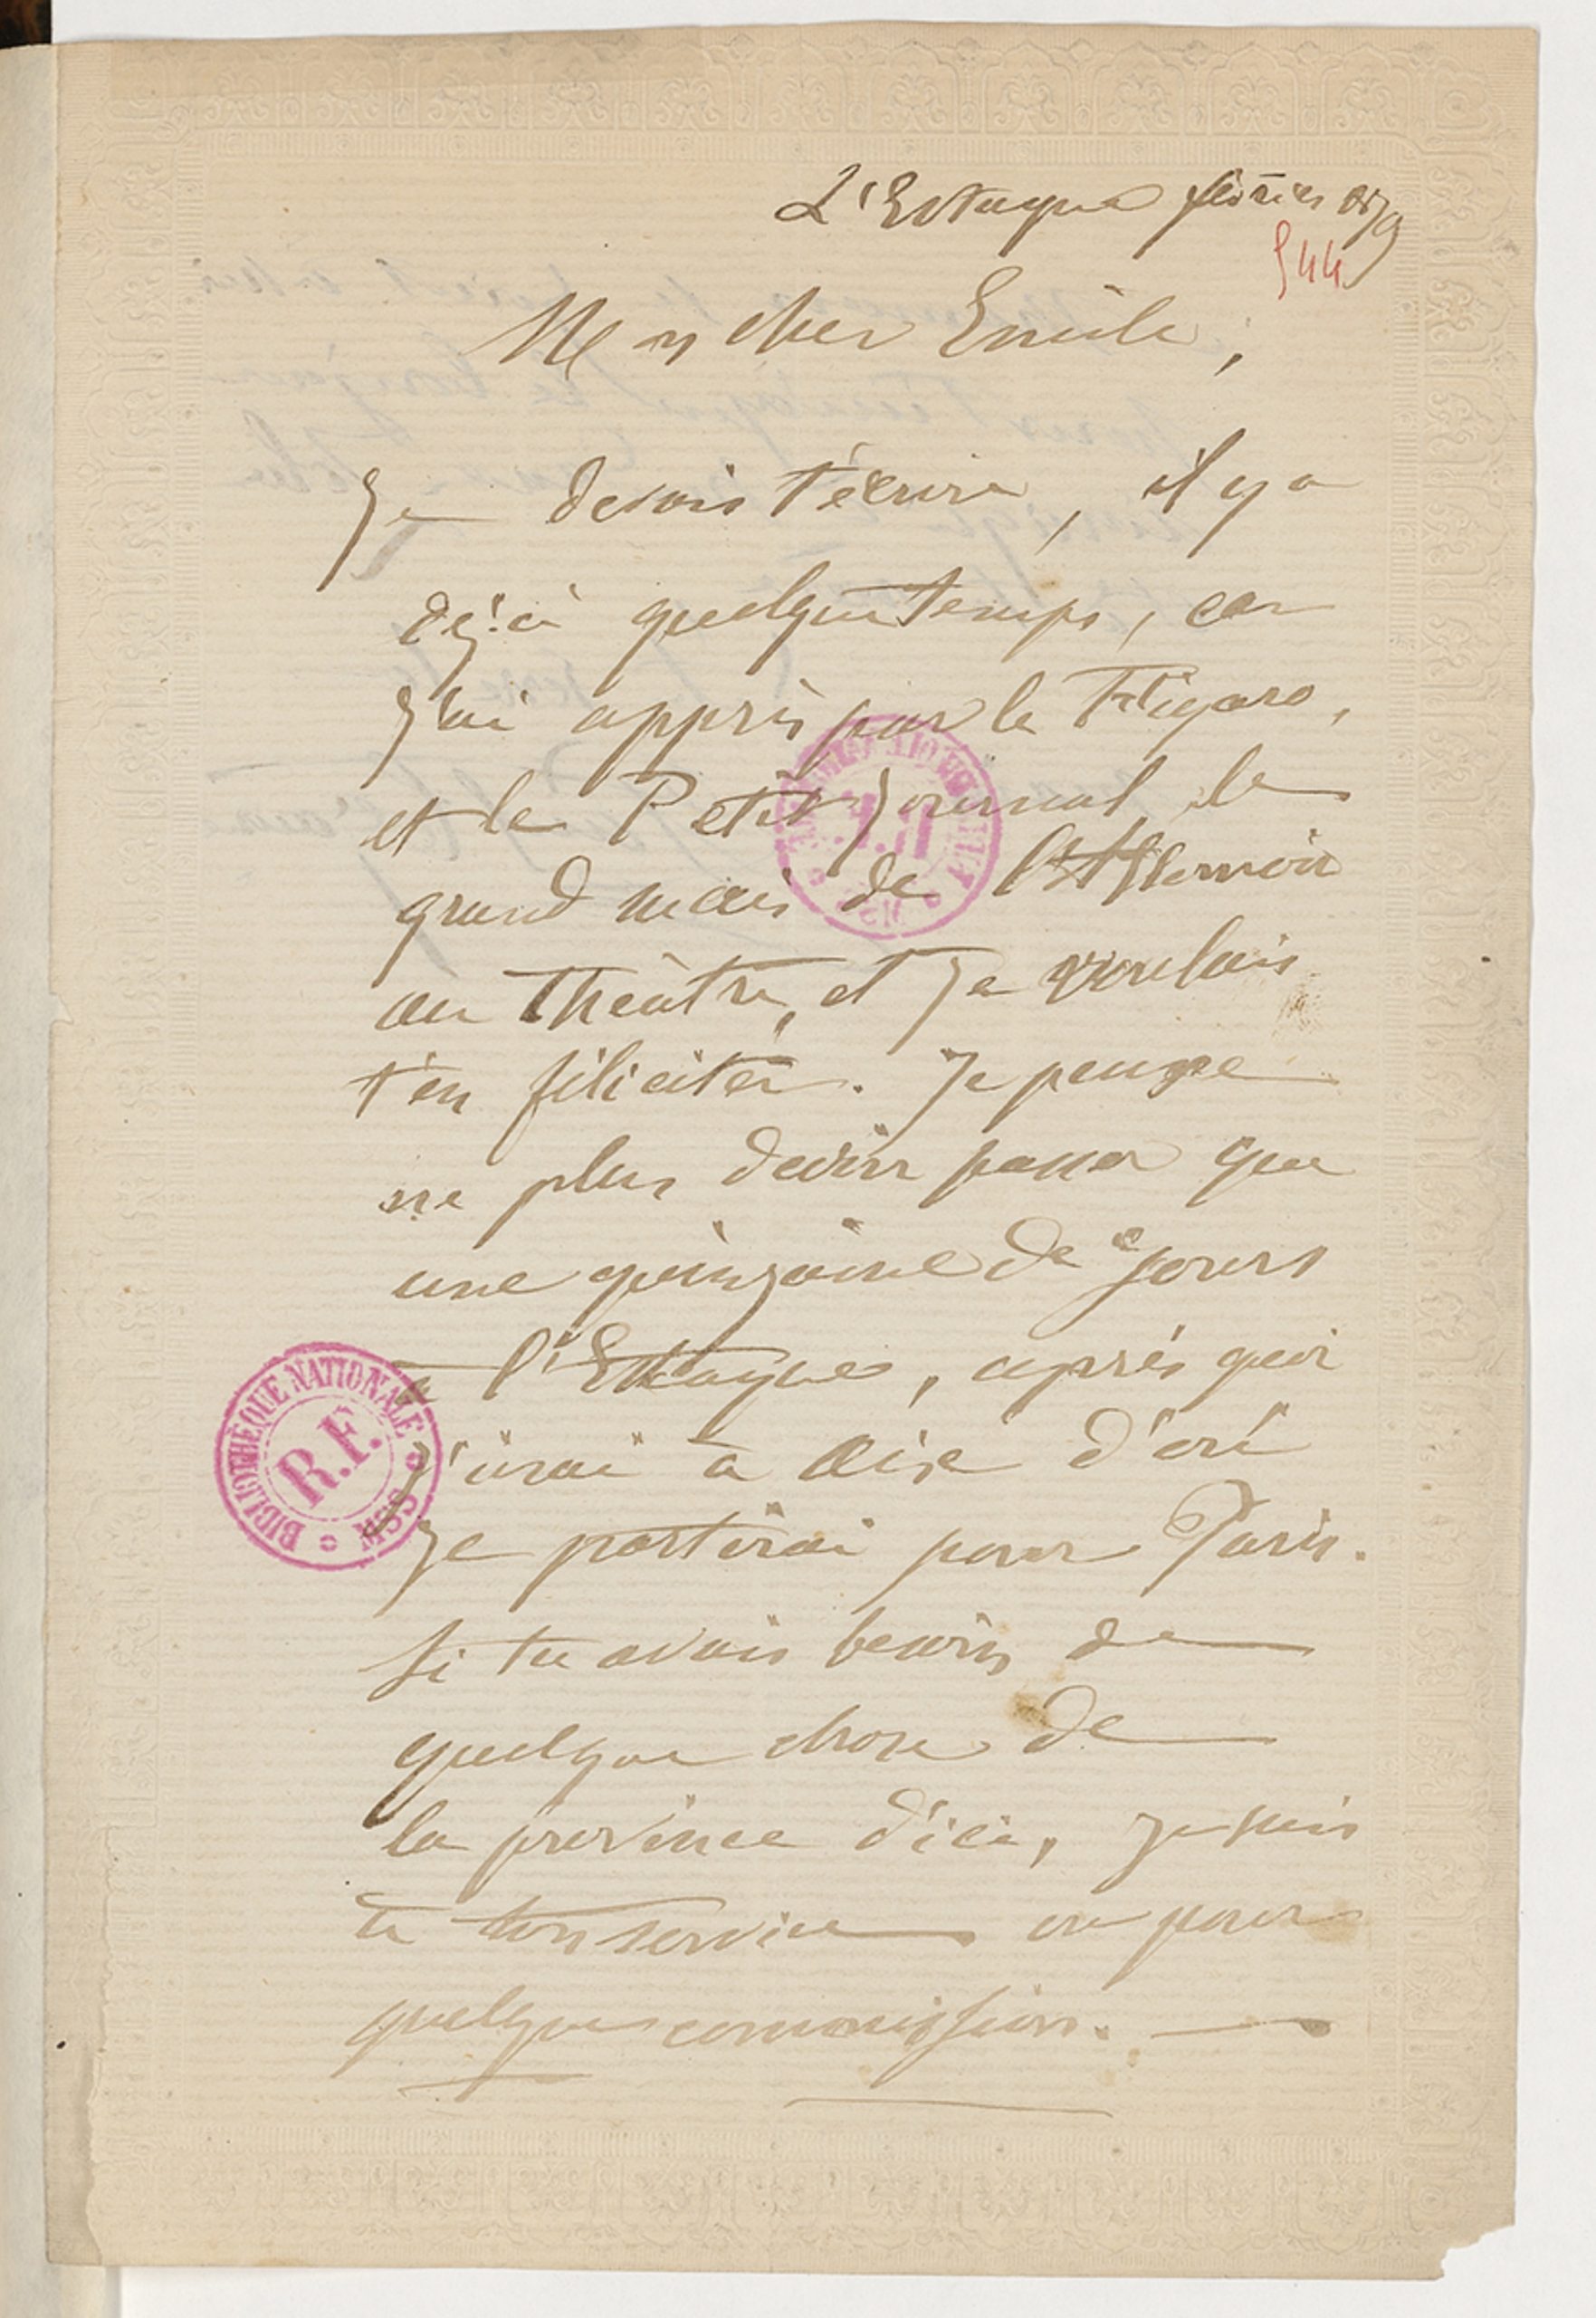 L'Estaque février 1879
544
Mon cher Emile,
Je devais t'écrire, il y a
déjà quelque temps, car
j'ai appris par le Figaro,
et le Petit Journal le
grand succès de l'Assommoir
au théâtre, et je voulais
t'en féliciter. Je pense
ne plus devoir passer que
une quinzaine de jours
à l'Estaque, après quoi
j'irai à Aix d'où
je partirai pour Paris.
Si tu avais besoin de
quelque chose de
la province d'ici, je suis
à ton service ou pour
quelque commission.
BIBLIOTHÈQUE NATIONALE
R.F.
MSS